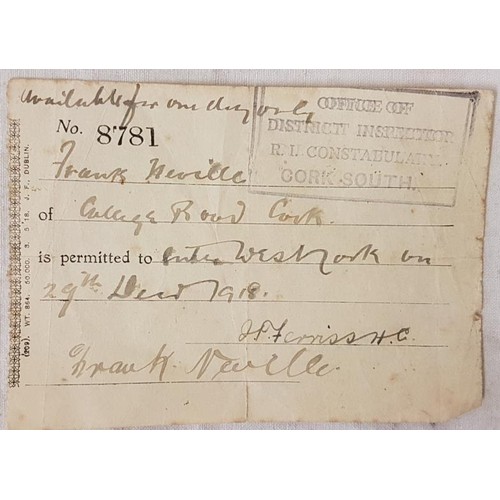 available for one day only
OFFICE OF
DISTRICT INSPECTOR
R. I. CONSTABULARY.
CORK SOUTH.
No. 8781
Frank Neville
of College Road Cork.
is permitted to enter West Cork on
29th Decr 1918.
H. Ferriss H.C.
Frank Neville.
(209). WT. 864. 50,000. 5. 5 '18. J. F., DUBLIN.